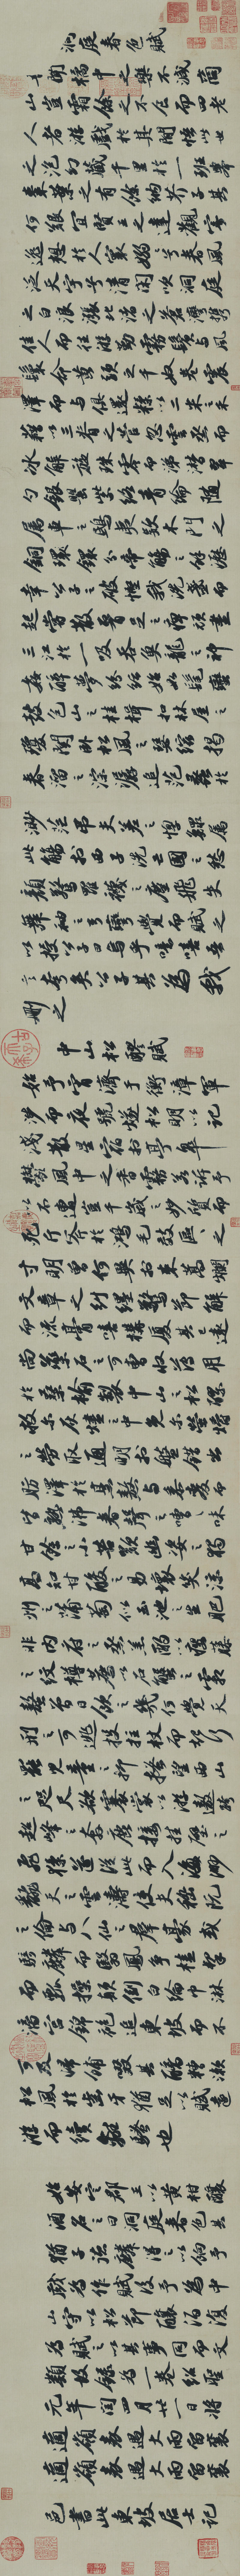 洞庭春色賦
吾聞橘中之樂不減商
山豈霜餘之不食而四老
人者游戲於其間悟此世
之泡幻藏千里於一班舉
棗葉之有餘納芥子其
何艱宜賢王之達觀寄
逸想於人寰嫋嫋兮春風
泛天宇兮清閑吹洞庭
之白浪漲北渚之蒼灣攜
佳人而往游勤霧鬢與風
鬟命黃頭之千奴卷震
澤而與俱還糅以二米之禾
藉以三脊之菅忽雲烝而
冰解旋珠零而涕潸翠
勺銀罌紫絡青綸隨
屬車之鴟夷款木門之
銅鐶分帝觴之餘瀝
幸公子之破慳我洗盞而
起嘗散腰足之痹頑盡
三江於一吸吞魚龍之神
姦醉夢紛紜始如髦蠻
鼓包山之桂楫扣林屋之
瓊關臥松風之瑟縮揭
春溜之淙潺追范蠡於
渺茫弔夫差之惸鰥屬
此觴於西子洗亡國之愁
顏驚羅襪之塵飛失
舞袖之弓彎覺而賦之
以授公子曰烏乎噫嘻吾
言夸矣公子其為我
刪之
中山松醪賦
始予宵濟于衡漳軍
涉而夜號燧松明以記
淺散星宿於亭皋
鬱風中之香霧若訴予
以不遭豈千歲之妙質而
死斤斧於鴻毛效區區之
寸明曾何異於束蒿爛
文章之糾纆驚節解
而流膏嗟構廈其已遠
尚藥石之可曹收薄用
於桑榆製中山之松醪
救爾灰燼之中免爾螢爝
之勞取通明於盤錯出
肪澤於烹熬與黍麥而
皆熟沸舂聲之嘈嘈味
甘餘之小苦歎幽姿之獨
高知甘酸之易壞笑涼
州之蒲萄似玉池之生肥
非內府之烝羔酌以癭藤
之紋樽薦以石蟹之霜
螯曾日飲之幾何覺天
刑之可逃投拄杖而起行
罷兒童之抑搔望西山
之咫尺欲褰裳以游遨跨
超峰之奔鹿接挂壁之
飛猱遂從此而入海渺
翻天之雲濤使夫嵇阮
之倫與八仙之群豪或
騎麟而翳鳳爭榼挈
而瓢操顛倒白綸巾淋
漓宮錦袍追東坡而不
可及歸餔歠其醨糟漱
松風於齒牙猶足以賦遠
游而續離騷也
始安定郡王以黃柑釀
酒名之曰洞庭春色其
猶子德麟得之以餉予
戲為作賦後予為中
山守以松節釀酒復
為賦之以其事同而文
類故錄為一卷紹聖
元年閏四月廿一日將
適嶺表遇大雨留襄
邑書此東坡居士記